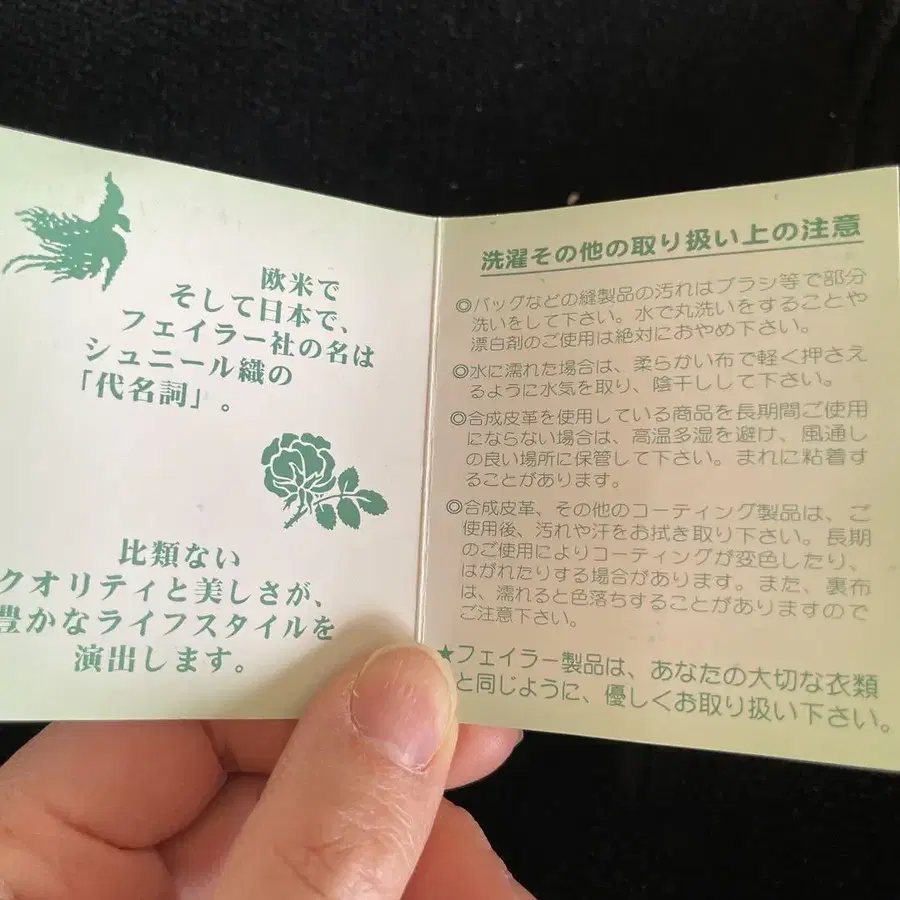 欧米で
そして日本で、
フェイラー社の名は
シュニール織の
「代名詞」。
比類ない
クオリティと美しさが、
豊かなライフスタイルを
演出します。
洗濯その他の取り扱い上の注意
◎バッグなどの縫製品の汚れはブラシ等で部分
洗いをして下さい。水で丸洗いをすることや
漂白剤のご使用は絶対におやめ下さい。
◎水に濡れた場合は、柔らかい布で軽く押さえ
るように水気を取り、陰干しして下さい。
◎合成皮革を使用している商品を長期間ご使用
にならない場合は、高温多湿を避け、風通し
の良い場所に保管して下さい。まれに粘着す
ることがあります。
◎合成皮革、その他のコーティング製品は、ご
使用後、汚れや汗をお拭き取り下さい。長期
のご使用によりコーティングが変色したり、
はがれたりする場合があります。また、裏布
は、濡れると色落ちすることがありますので
ご注意下さい。
★フェイラー製品は、あなたの大切な衣類
と同じように、優しくお取り扱い下さい。